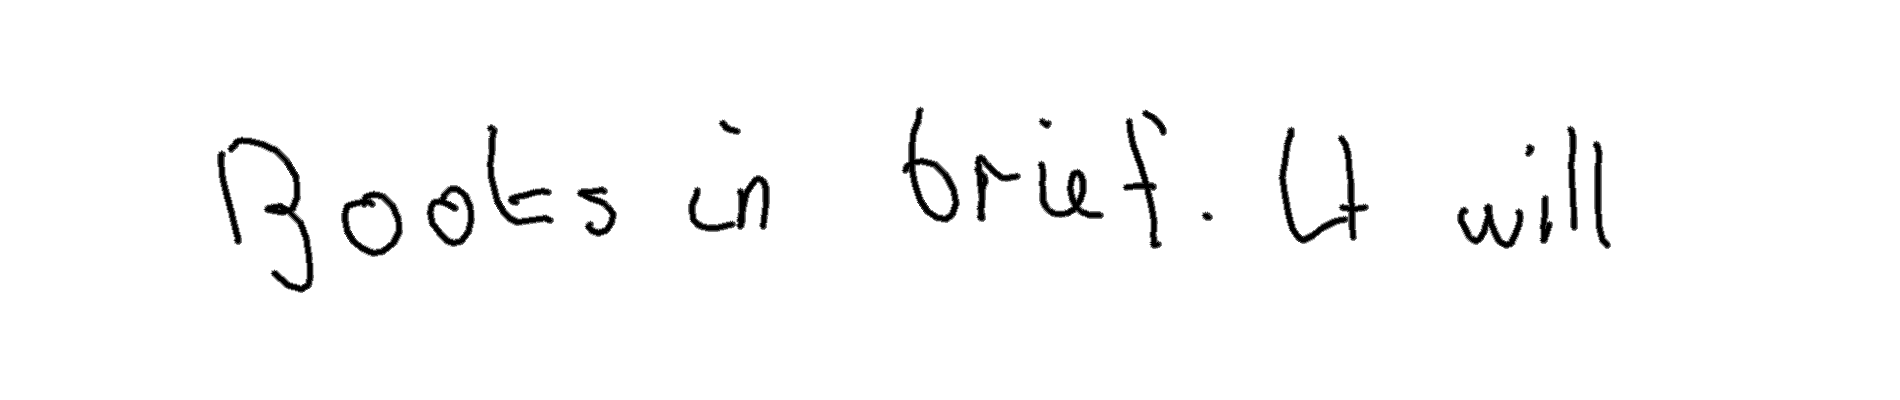 Books in brief. It will